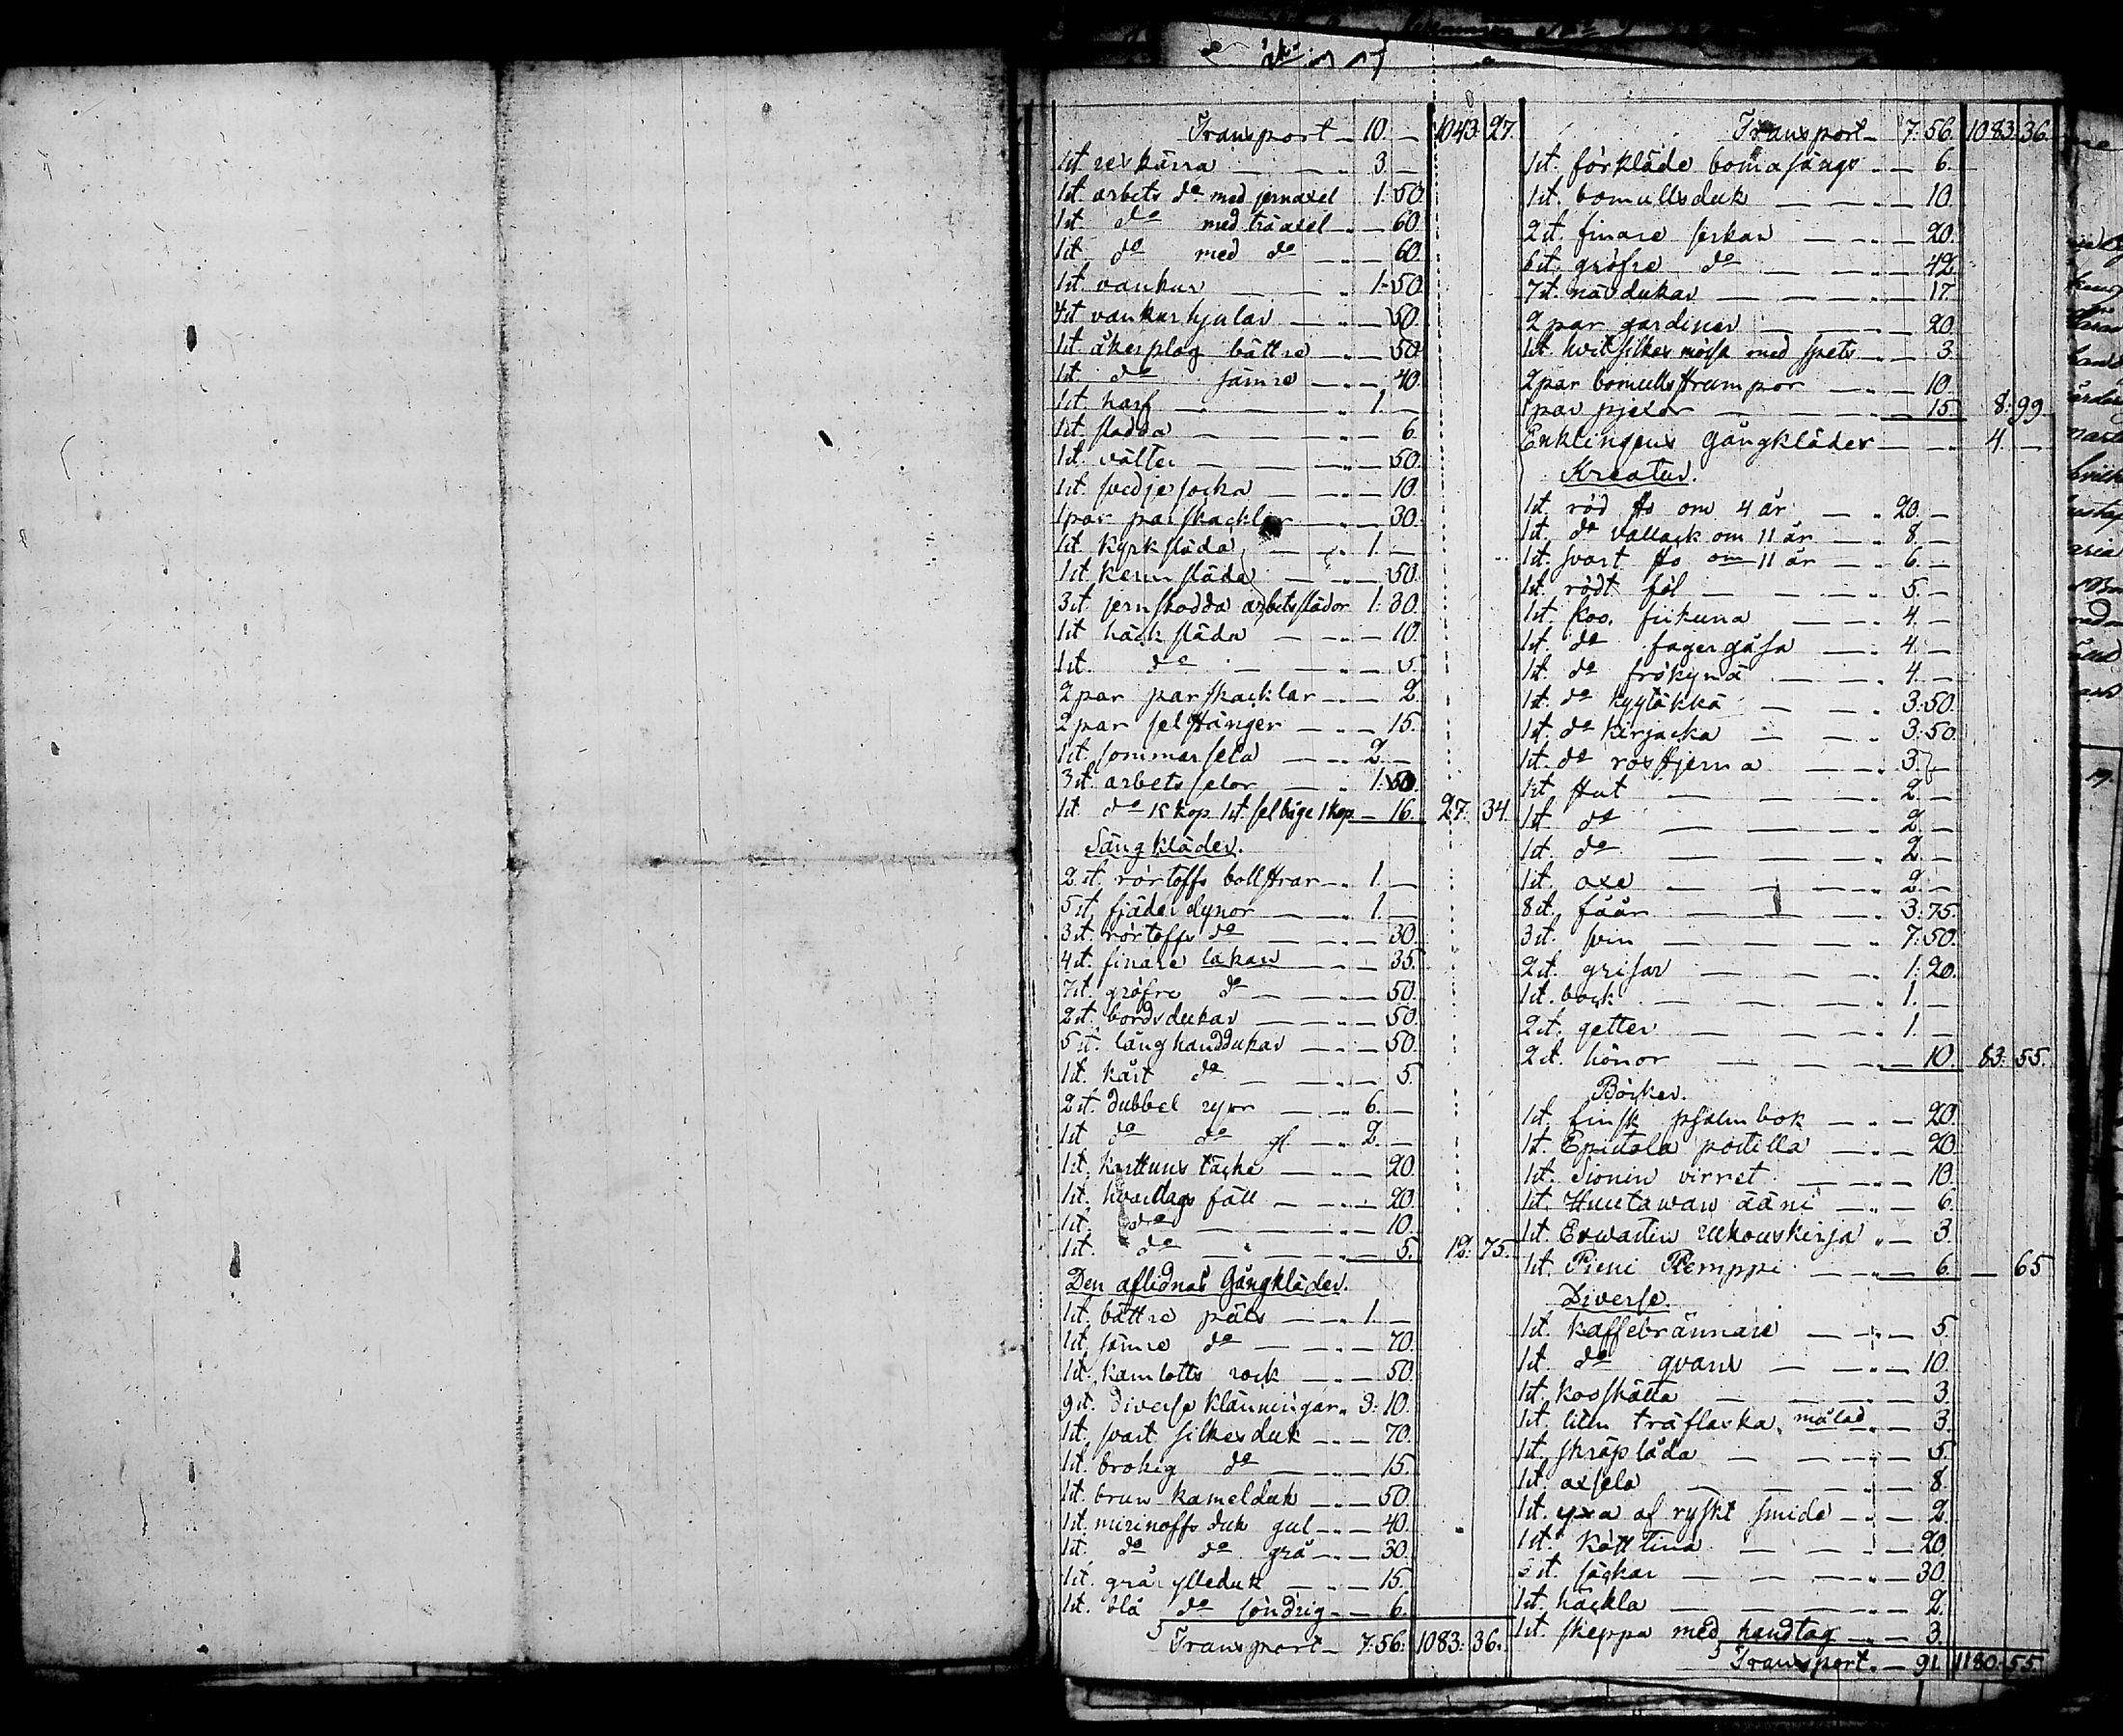 Transport 10. — 1043. 27.
1 st. reskärra — 3. —
1 st. arbets do med jernaxel 1: 50
1 st. do med träaxel — 60
1 st. do med do — 60
1 st. vankur — 1: 50
4 st vankurhjular — 50.
1 st. åkerplog bättre — 50
1 st. do sämre — 40.
1 st. harf — 1. —
1 st. sladda — 6.
1 st. vältar — 50.
1 st. svedje — 10.
1 par parskacklor — 30.
1 st. kyrksläda — 1. —
1 st. kerrusläda — 50.
3 st. jernskodda arbetsslädor 1: 30.
1 st häcksläda — 10.
1 st. do — 5.
2 par parskacklar — 2.
2 par selstänger — 15.
1 st. sommarsela — 2. —
3 st. arbetsselor — 1: 50.
1 st. do 15 kop. 1 st. selbåge 1 kop. — 16. 27. 34.
Sängkläder.
2 st. rörtoffs bollstrar — 1. —
5 st. fjäderdynor — 1. —
3 st. rörtoffs do — 30.
4 st. finare lakan — 35.
7 st. gröfre do — 50.
2 st. bordsdukar — 50.
5 st. lång handdukar — 50.
1 st. kårt do — 5.
2 st. dubbel ryor — 6. —
1 st do do gl — 2. —
1 st. kattuns täcke — 20.
1 st. hvardags fäll — 20.
1 st. do — 10.
1 st. do — 5. 12: 75.
Den aflidnas Gångkläder.
1 st. bättre päls — 1. —
1 st. sämre do — 70.
1 st. kamlotts rock — 50.
9 st. diverse klänningar 3: 10.
1 st. svart silkesduk — 70.
1 st. brokig do — 15.
1 st. brun kamelduk — 50.
1 st. mirinoffs duk gul — 40.
1 st. do do grå — 30.
1 st. grå ylleduk — 15.
1 st. blå do söndrig — 6.
Transport — 7: 56. 1083: 36.
Transport — 7: 56. 1083: 36.
1 st. förkläde bomasängs — 6.
1 st. bomullsduk — 10.
2 st. finare serkar — 20.
6 st. gröfre do — 42
7 st. näsdukar — 17.
2 par gardiner — 20.
1 st. hvit silkes mössa med spets — 3.
2 par bomullsstrumpor — 10.
1 par pjexor — 15. 8: 99.
Enklingens Gångkläder — 4. —
Kreatur.
1 st. röd sto om 4 år — 20. —
1 st. do vallack om 11 år — 8. —
1 st. svart sto om 11 år — 6. —
1 st. rödt föl — 5. —
1 st. koo, fiikuna — 4. —
1 st. do fagergåsa — 4. —
1 st. do frökynä — 4. —
1 st. do kyytäkkä — 3: 50.
1 st. do kirjacka — 3: 50.
1 st. do rosstjerna — 3. —
1 st stut — 2. —
1 st. do — 2. —
1 st. do — 2. —
1 st. oxe — 2. —
8 st. fåår — 3: 75.
3 st. svin — 7: 50.
2 st. grisar — 1: 20.
1 st. bock — 1. —
2 st. getter — 1. —
2 st. hönor — 10. 83: 55.
Böcker.
1 st. finsk psalmbok — 20.
1 st. Epistola postilla — 20
1 st. Sionin virret — 10.
1 st. Huutawan ääni — 6.
1 st. Erwastin rukouskirja — 3.
1 st. Pieni Remppi — 6. — 65
Diverse.
1 st. kaffebrännare — 5.
1 st. do qvarn — 10.
1 st. kooskälla — 3.
1 st. liten träflaska, målad — 3.
1 st. skräplåda — 5.
1 st. oxsela — 8.
1 st. yxa af ryskt smide — 2.
1 st. kötttina — 20.
5 st. säckar — 30.
1 st. häckla — 2.
1 st. skeppa med handtag — 3.
Transport — 91. 1180: 55.